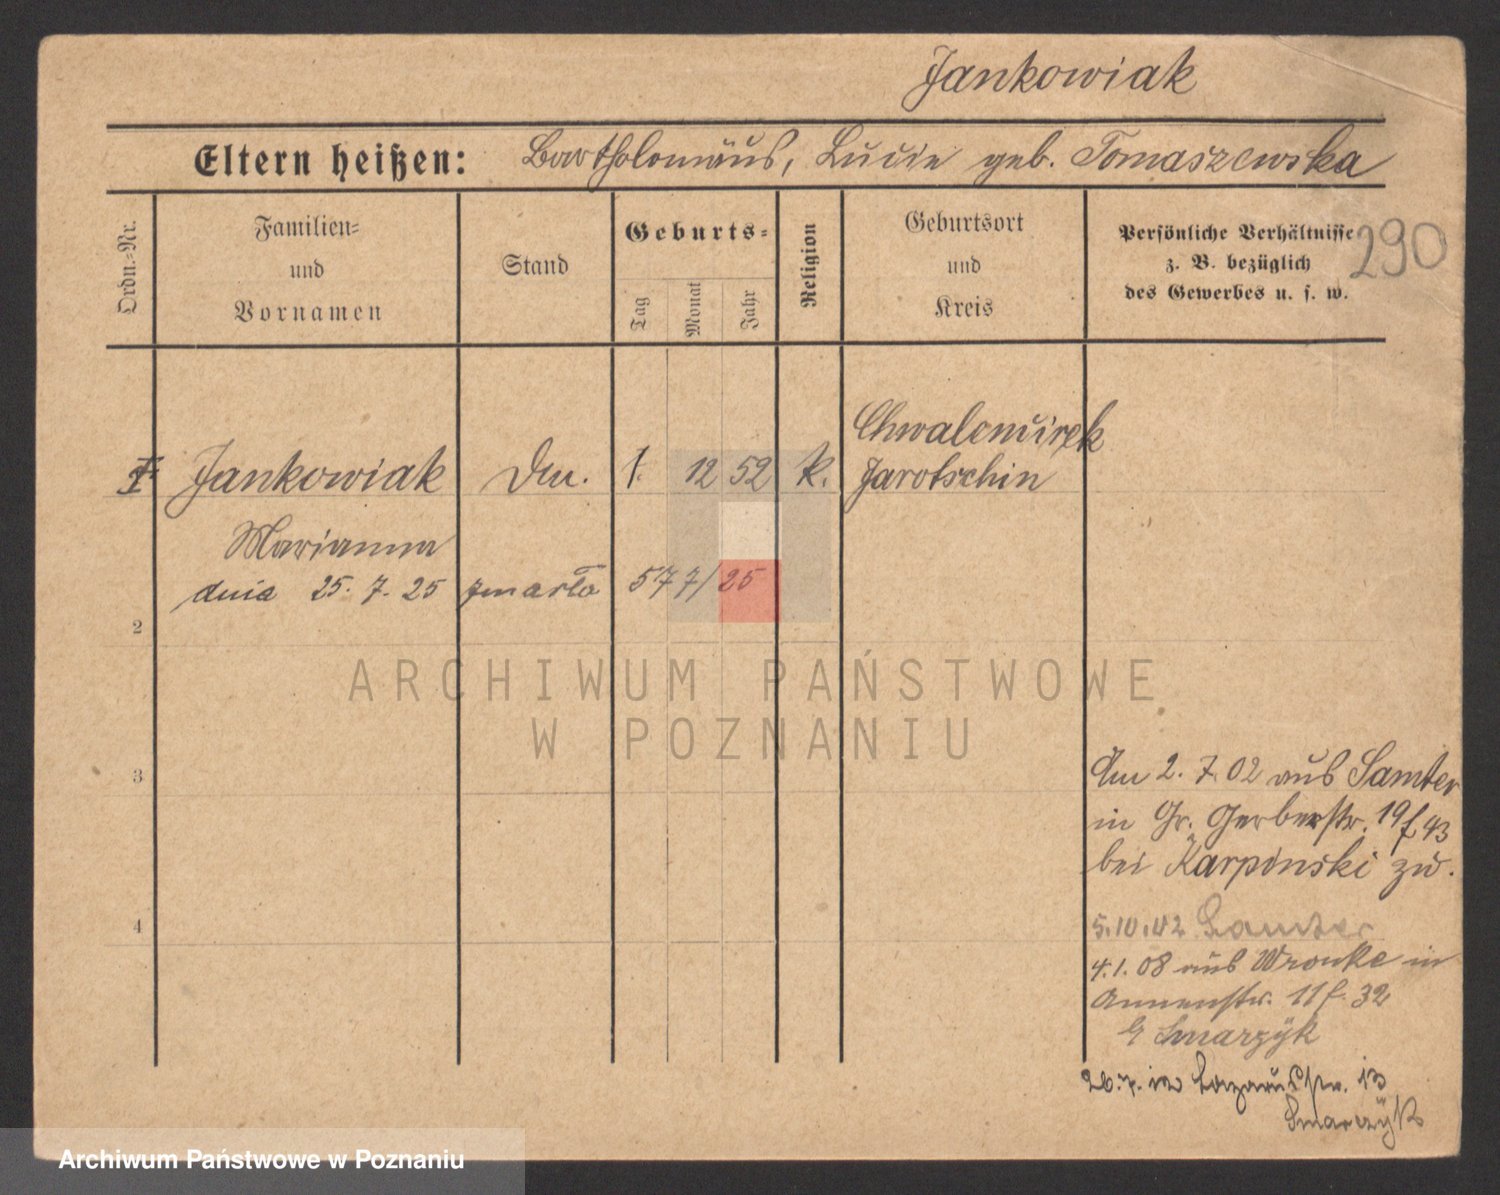 Jankowiak
Eltern heißen: Bartholomäus, Lucie geb. Tomaszewska
Ordn.-Nr.
Familien- und Vornamen
Stand
Geburts-
Tag
Monat
Jahr
Religion
Geburtsort und Kreis
Persönliche Verhältnisse z. B. bezüglich des Gewerbes u. s. w.
290
Jankowiak 1. 12 52 k. Jarotschin
Marianna
dnia 25. 7. 25 zmarła 577/25
2
3
4
Am 2. 7. 02 aus Samter
in Gr. Gerberstr. 19 f 43
bei Karpinski zu.
5.10.02 Samter
4.1.08 aus Wronke in
Annenstr. 11 f. 32
Smarzÿk
26.7. in Lazarusstr. 13
Smarzÿk
ARCHIWUM PAŃSTWOWE
W POZNANIU
Archiwum Państwowe w Poznaniu